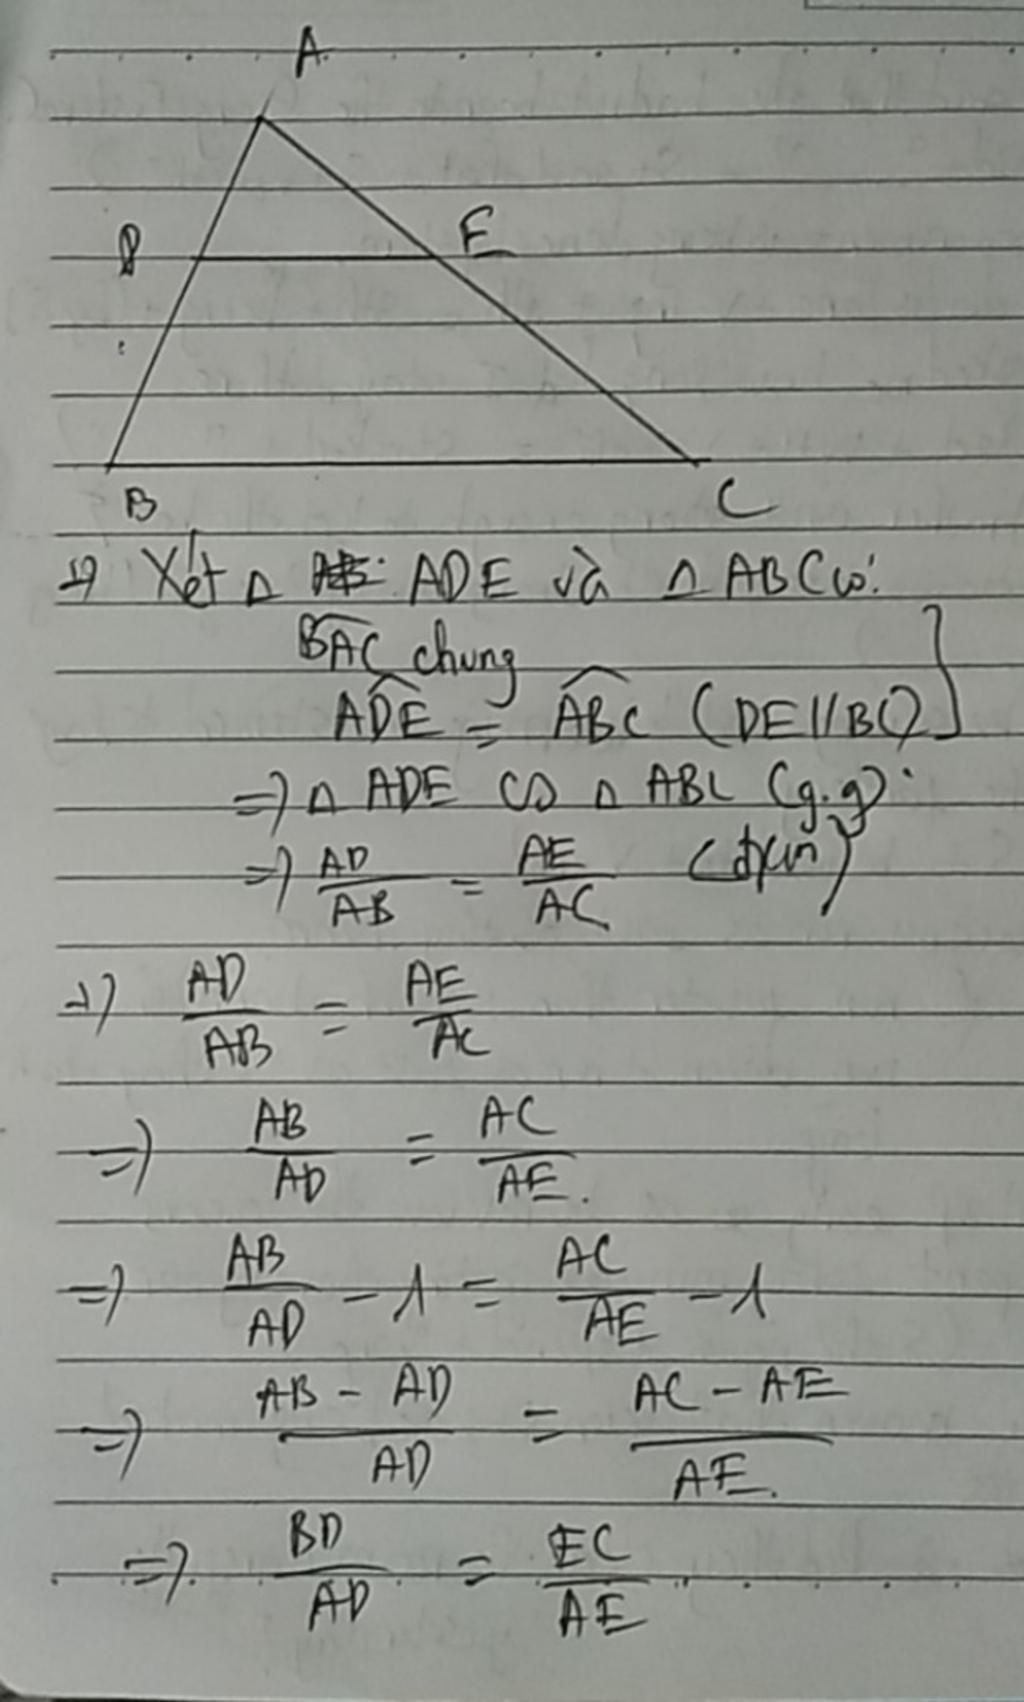 A
D E
B C
+) Xét Δ ADE và Δ ABC có:
BAC chung
ADE = ABC (DE//BC)
=) Δ ADE ∽ Δ ABC (g.g)
=) AD/AB = AE/AC (đpcm)
+) AD/AB = AE/AC
=) AB/AD = AC/AE.
=) AB/AD - 1 = AC/AE - 1
=) (AB - AD)/AD = (AC - AE)/AE.
=) BD/AD = EC/AE